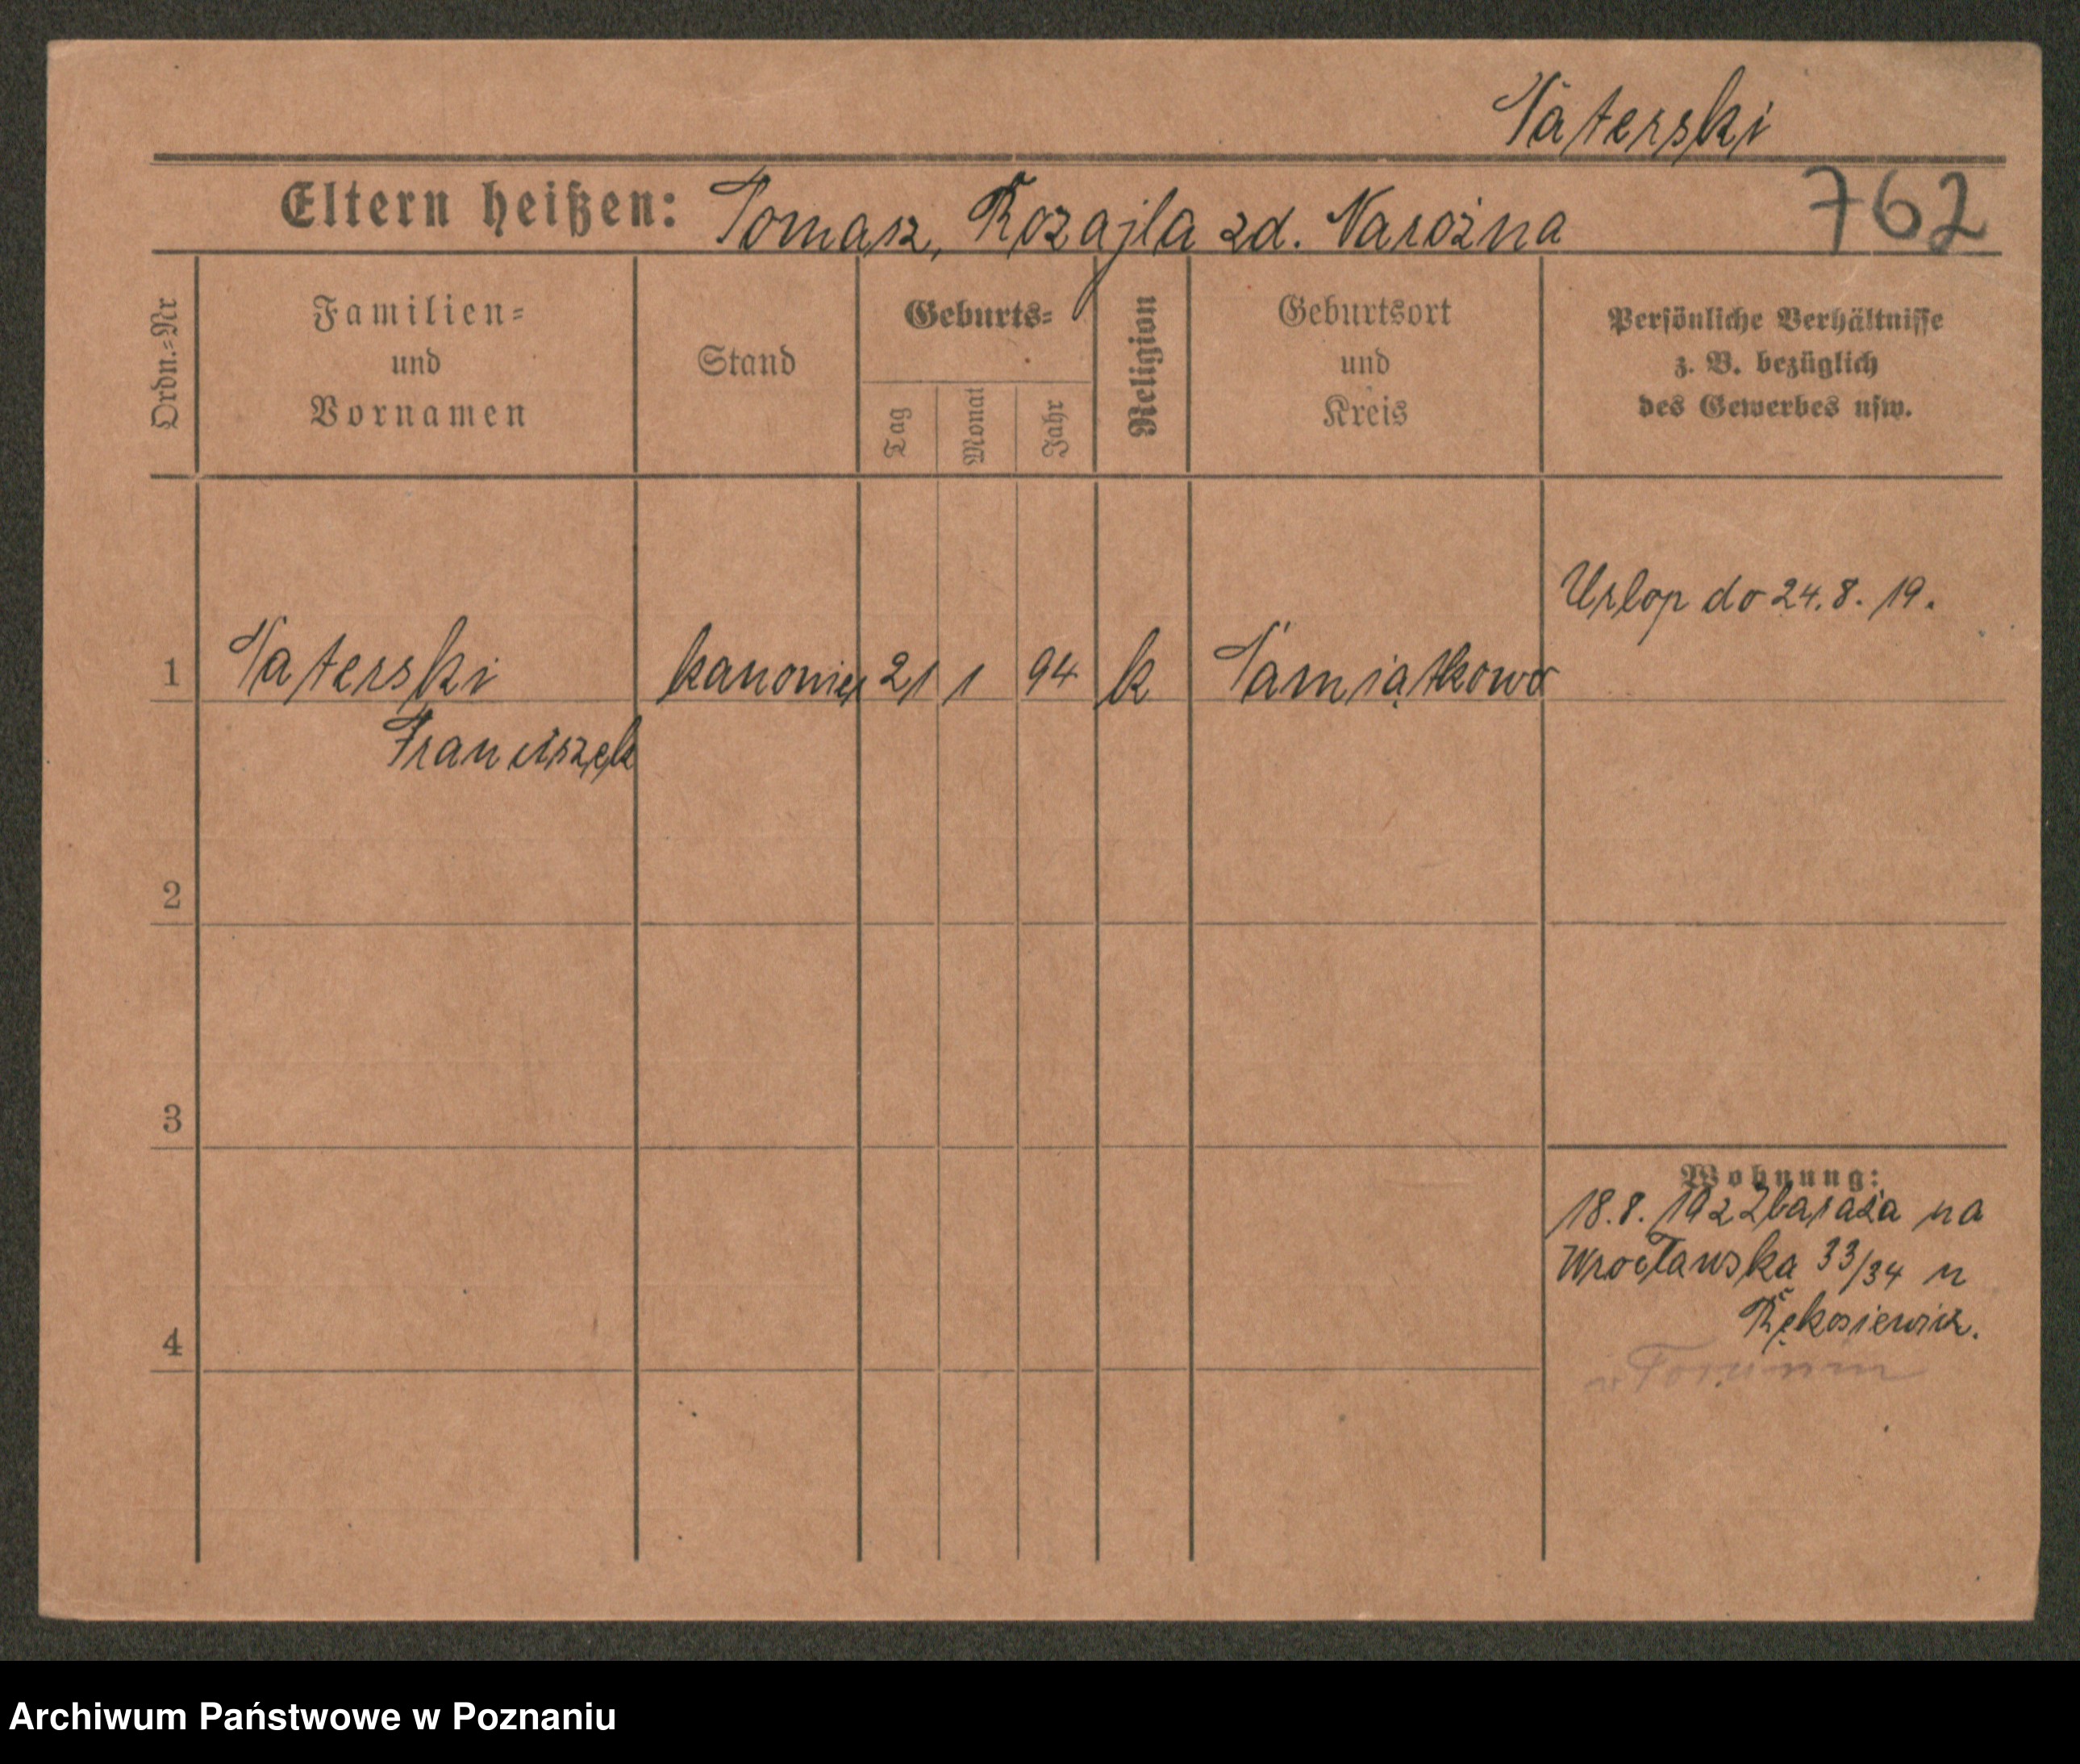 Taterski
Eltern heißen: Tomasz, Rozajla zd. Narożna 762
Ordn.=Nr
Familien=
und
Vornamen
Stand
Geburts=
Tag
Monat
Jahr
Religion
Geburtsort
und
Kreis
Persönliche Verhältnisse
z. B. bezüglich
des Gewerbes usw.
Urlop do 24. 8. 19.
1 Taterski kanonier 21 1 94 k
Franciszek
2
3
Wohnung:
18. 8. 19 z Zbaraża na
Wrocławska 33/34 u
4
w Toruniu
Archiwum Państwowe w Poznaniu